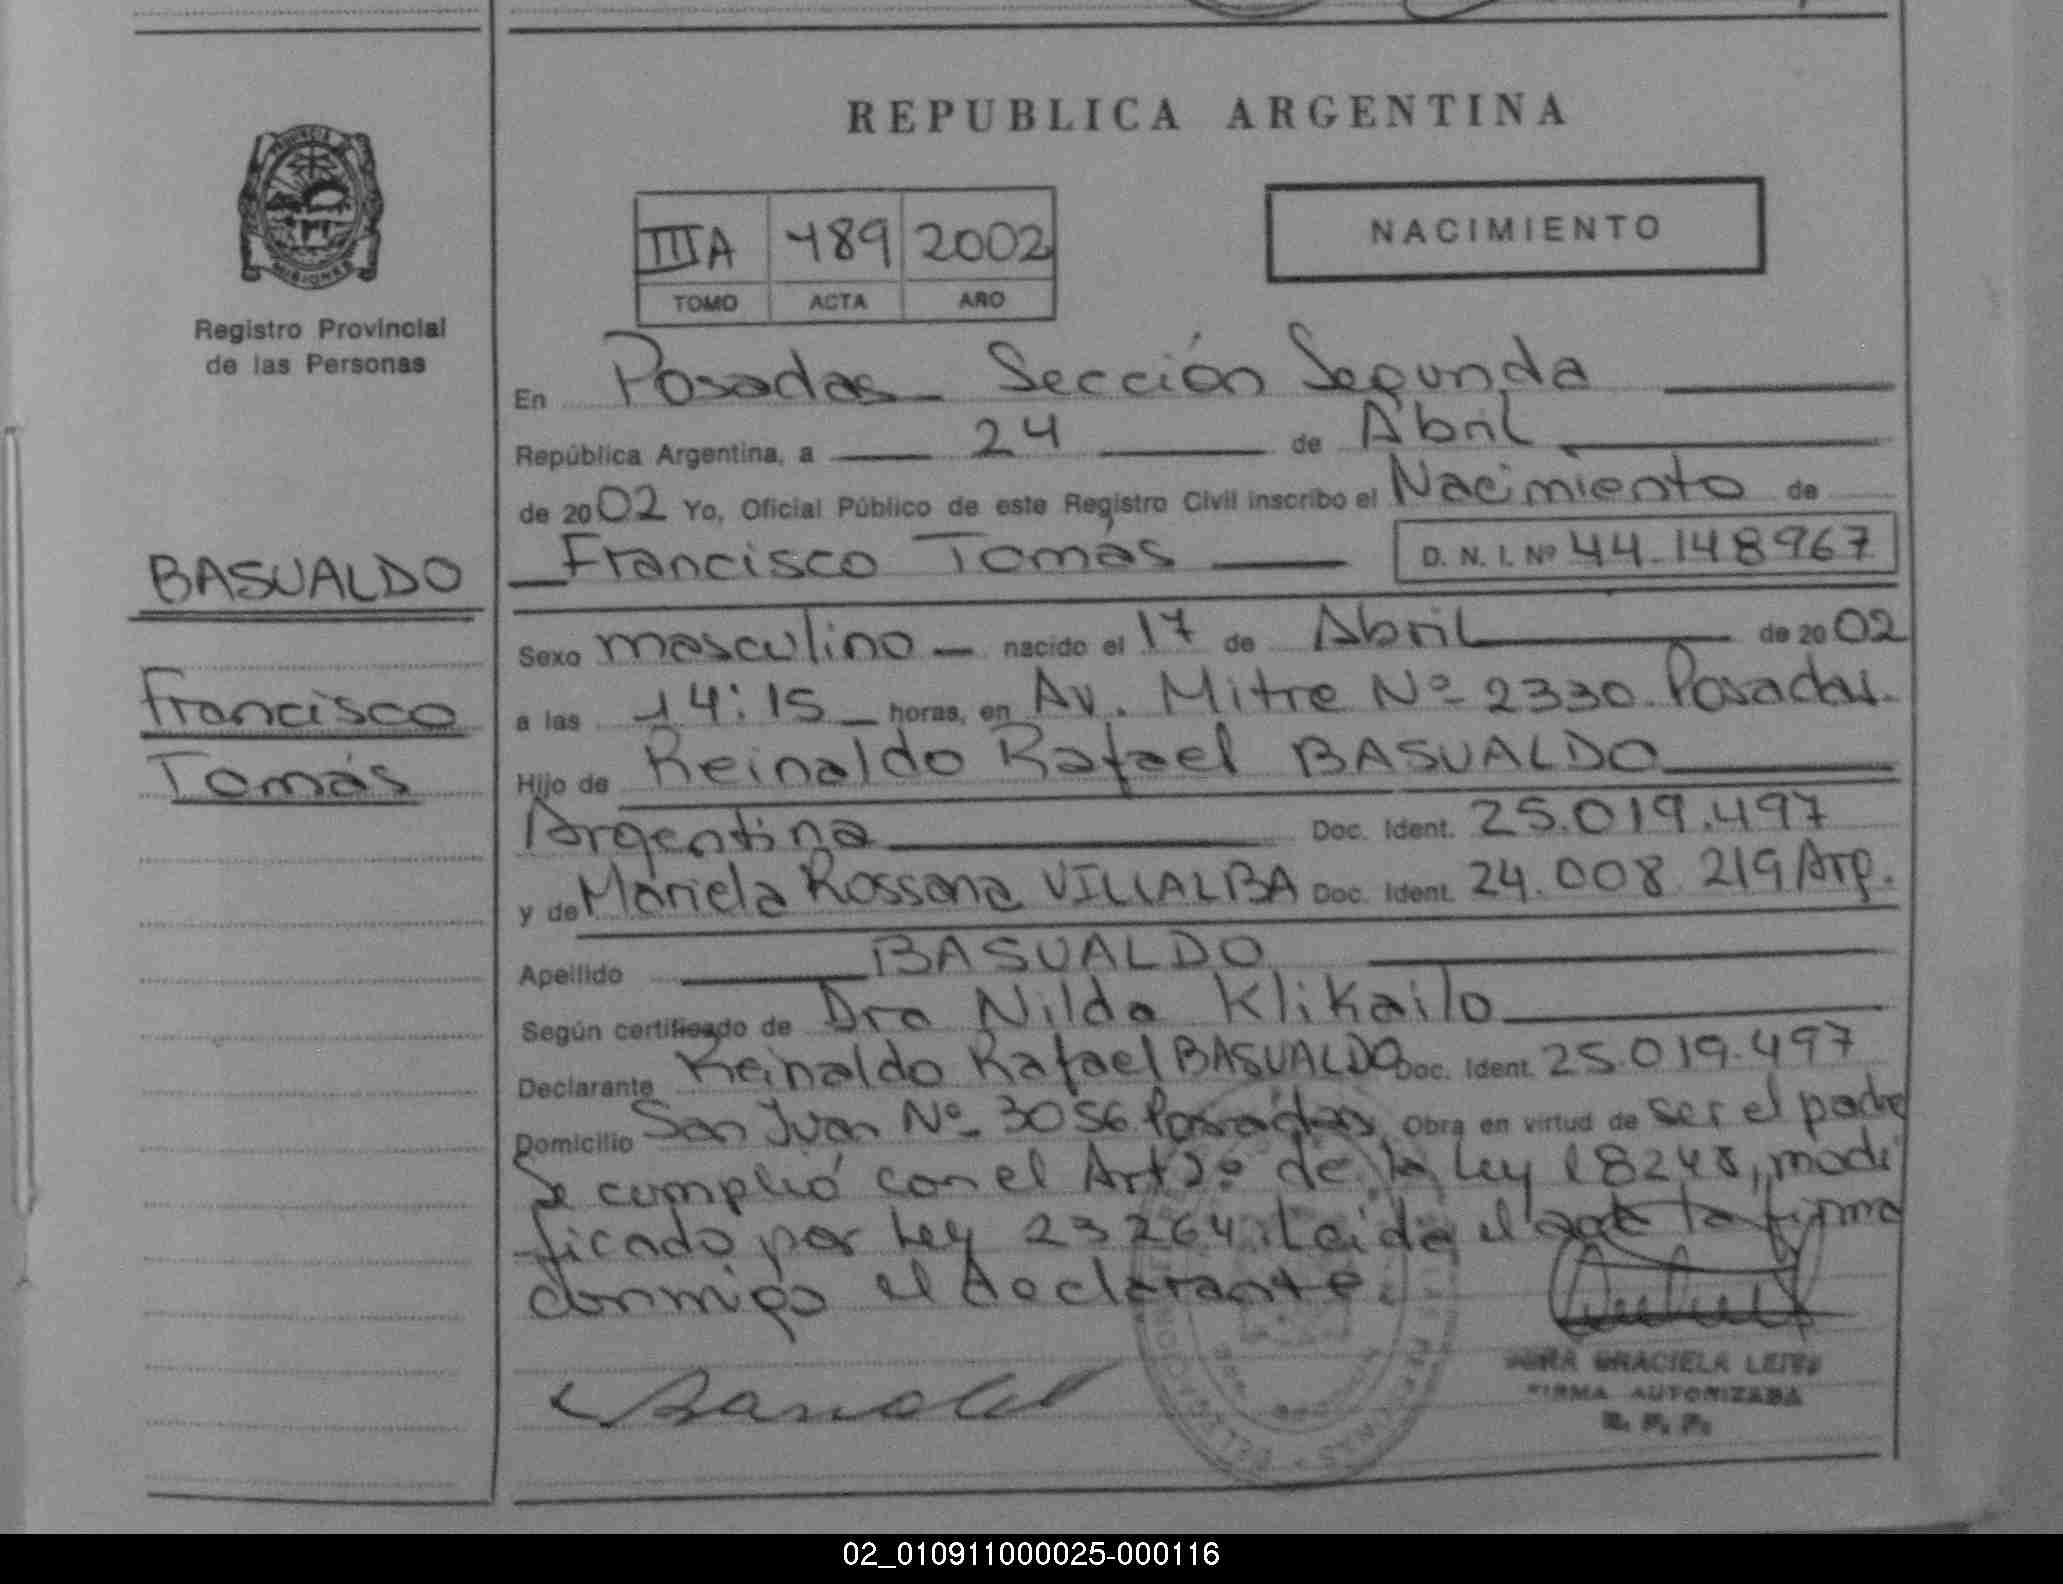 REPUBLICA ARGENTINA
PROVINCIA
MISIONES
Registro Provincial
de las Personas
IIIA 489 2002
TOMO ACTA AÑO
NACIMIENTO
En Posadas Sección Segunda
República Argentina, a 24 de Abril
de 2002 Yo, Oficial Público de este Registro Civil inscribo el Nacimiento de
Francisco Tomás D. N. I. Nº 44.148967
BASUALDO
Francisco
Tomás
Sexo masculino nacido el 17 de Abril de 2002
a las 14:15 horas, en Av. Mitre Nº 2330. Posadas.
Hijo de Reinaldo Rafael BASUALDO
Argentina Doc. Ident. 25.019.497
y de Mariela Rossana VILLALBA Doc. Ident. 24.008.219 Arg.
Apellido BASUALDO
Según certificado de Dra Nilda Klikailo
Declarante Reinaldo Rafael BASUALDO Doc. Ident. 25.019.497
Domicilio San Juan Nº 3056 Posadas Obra en virtud de ser el padre
Se cumplió con el Art 2º de la Ley 18248, modi
ficado por Ley 23264. Leida el acta la firma
conmigo el declarante.
GRACIELA
FIRMA AUTORIZADA
R. P. P.
02_010911000025-000116